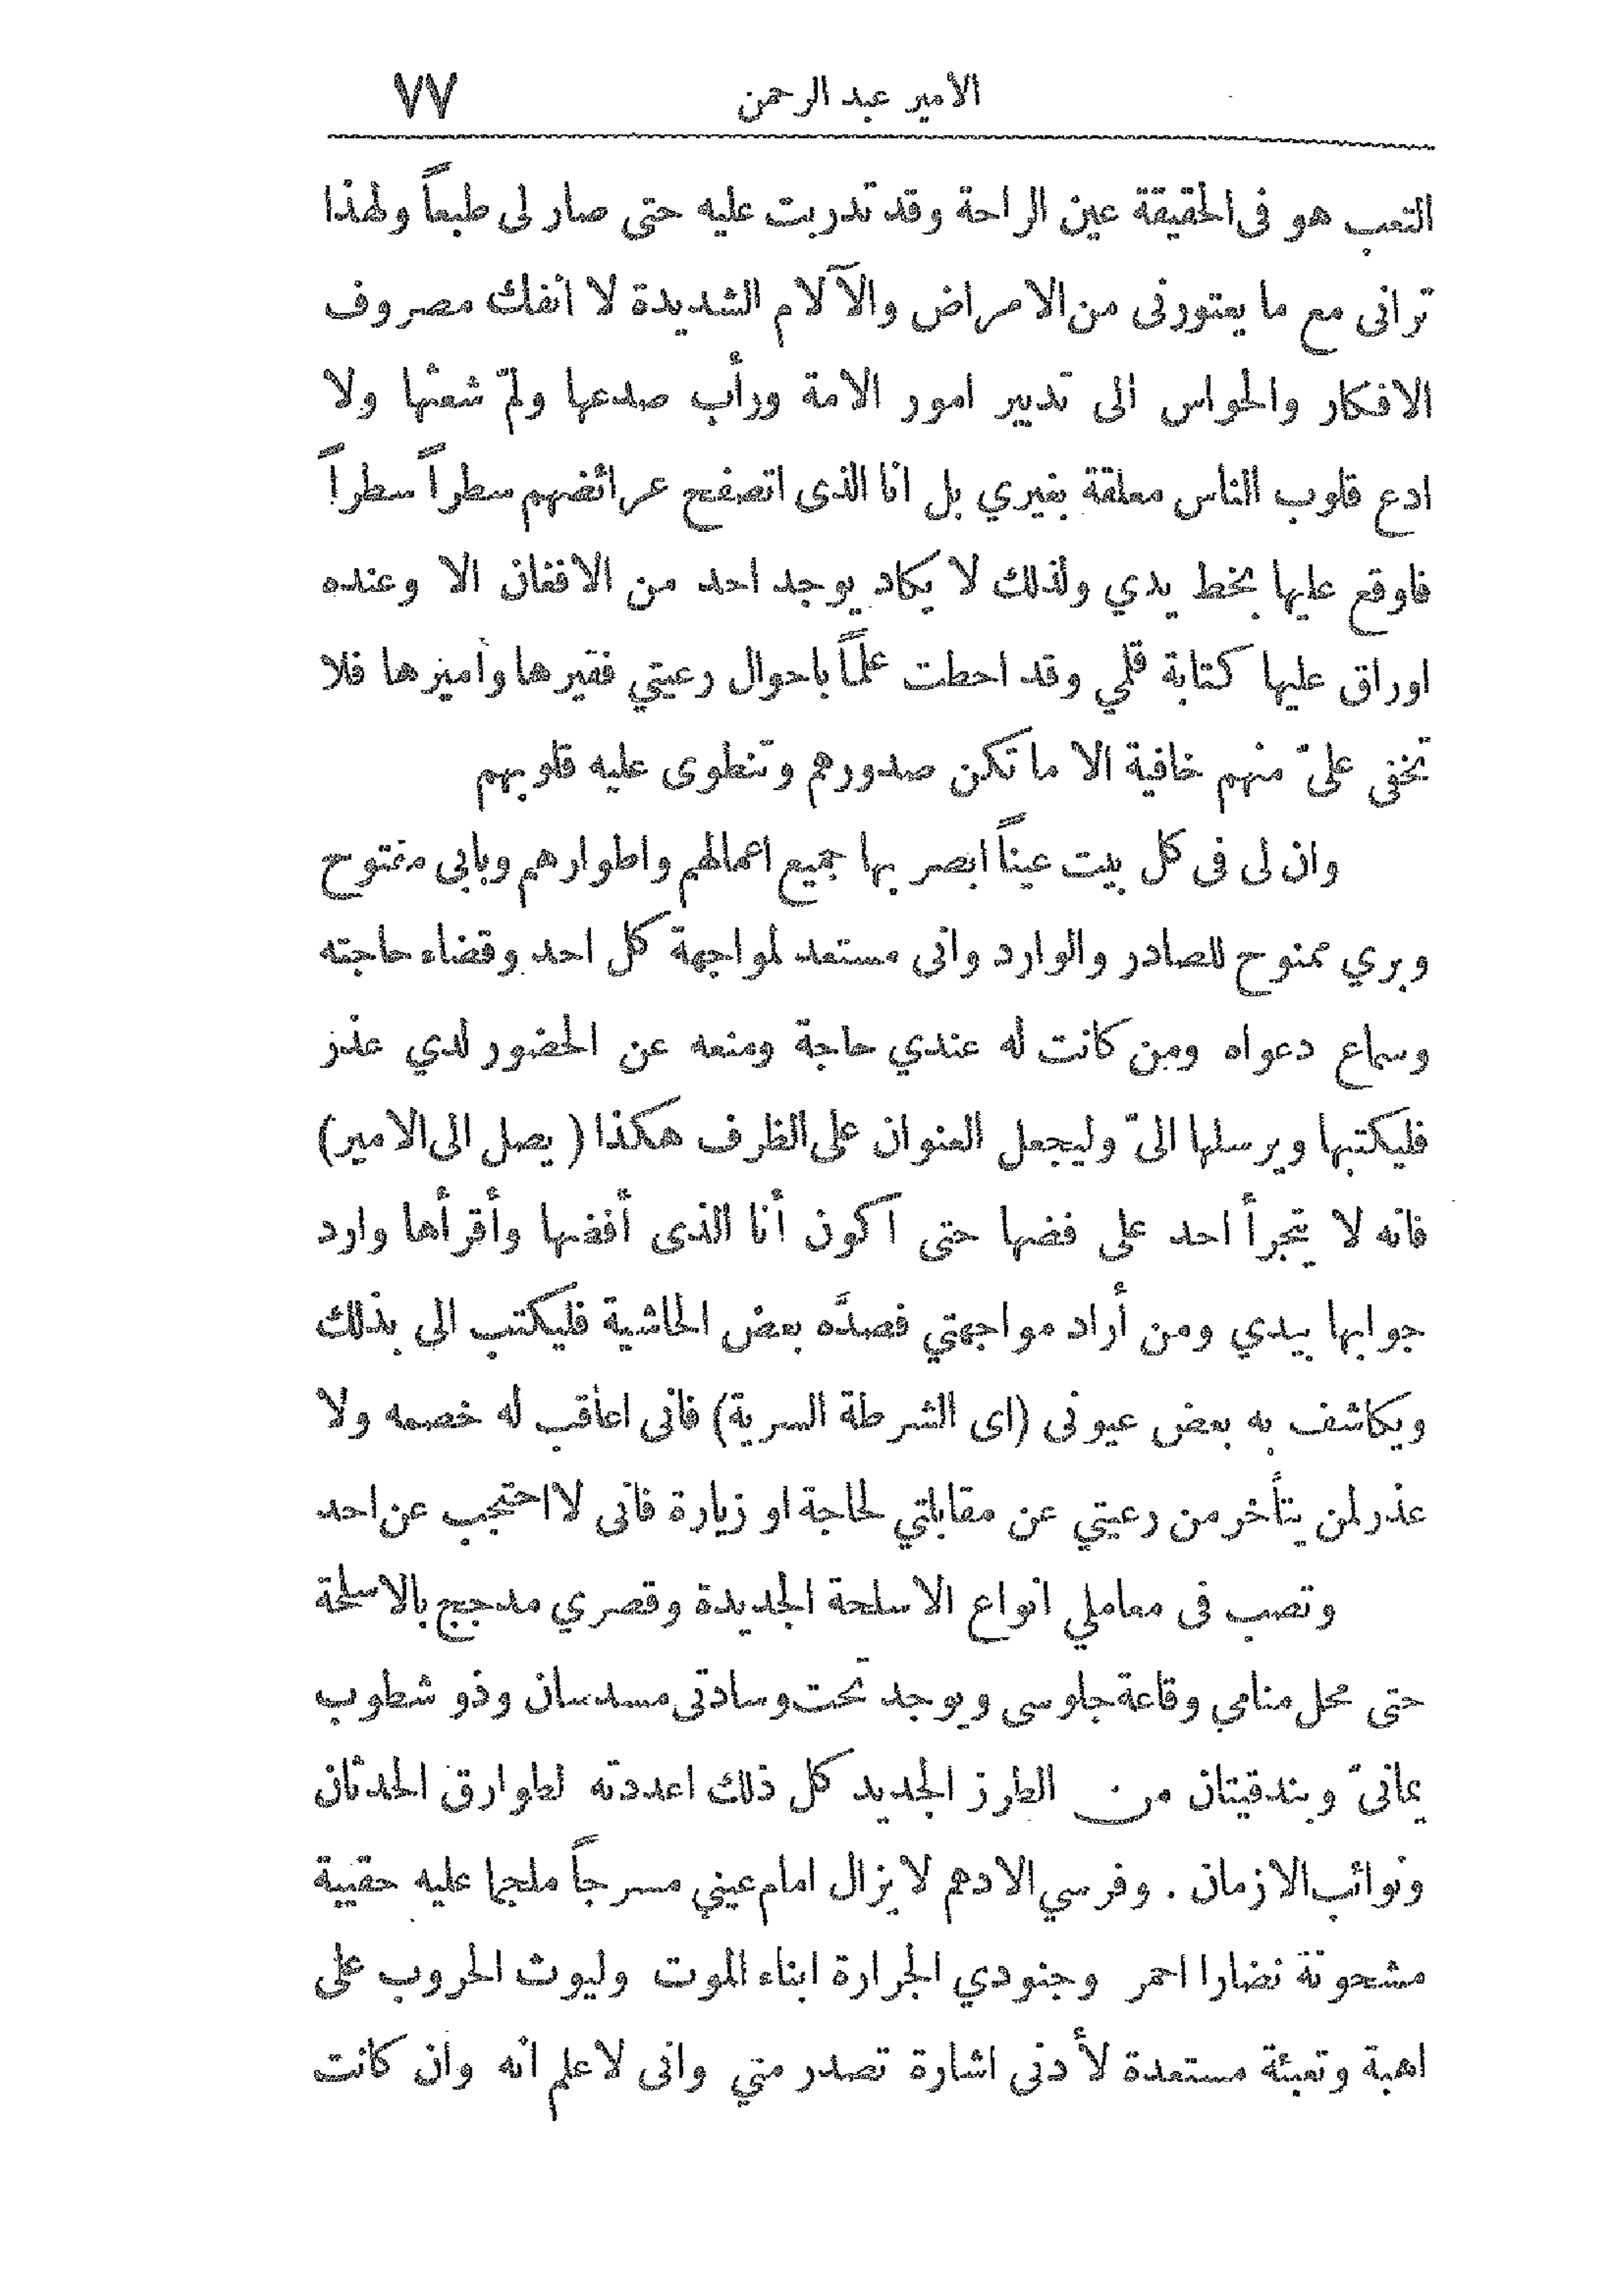 الأمير عبد الرحمن ٧٧
التعب هو فى الحقيقة عين الراحة وقد تدربت عليه حتى صار لى طبعاً ولهذا
ترانى مع ما يعتورنى من الامراض والآلام الشديدة لا انفك مصروف
الافكار والحواس الى تدبير امور الامة ورأب صدعها ولمّ شعثها ولا
ادع قلوب الناس معلقة بغيري بل انا الذى اتصفح عرائضهم سطراً سطراً
فاوقع عليها بخط يدي ولذلك لا يكاد يوجد احد من الافغان الا وعنده
اوراق عليها كتابة قلمي وقد احطت علماً باحوال رعيتي فقيرها وأميرها فلا
تخفى علىّ منهم خافية الا ما تكن صدورهم وتنطوى عليه قلوبهم
وان لى فى كل بيت عيناً ابصر بها جميع اعمالهم واطوارهم وبابى مفتوح
وبري ممنوح للصادر والوارد وانى مستعد لمواجهة كل احد وقضاء حاجته
وسماع دعواه ومن كانت له عندي حاجة ومنعه عن الحضور لدي عذر
فليكتبها ويرسلها الىّ وليجعل العنوان على الظرف هكذا ( يصل الى الامير)
فانه لا يتجرأ احد على فضها حتى اكون أنا الذى أفضها وأقرأها وارد
جوابها بيدي ومن أراد مواجهتي فصدَّه بعض الحاشية فليكتب الى بذلك
ويكاشف به بعض عيونى (اى الشرطة السرية) فانى اعاقب له خصمه ولا
عذر لمن يتأخر من رعيتي عن مقابلتي لحاجة او زيارة فانى لا احتجب عن احد
وتصب فى معاملي انواع الاسلحة الجديدة وقصري مدجج بالاسلحة
حتى محل منامي وقاعة جلوسى ويوجد تحت وسادتى مسدسان وذو شطوب
يمانىّ وبندقيتان من الطرز الجديد كل ذلك اعددته لطوارق الحدثان
ونوائب الازمان . وفرسي الادهم لا يزال امام عيني مسرجاً ملجما عليه حقيبة
مشحونة نضارا احمر وجنودي الجرارة ابناء الموت وليوث الحروب على
اهبة وتعبئة مستعدة لأدنى اشارة تصدر مني وانى لاعلم انه وان كانت